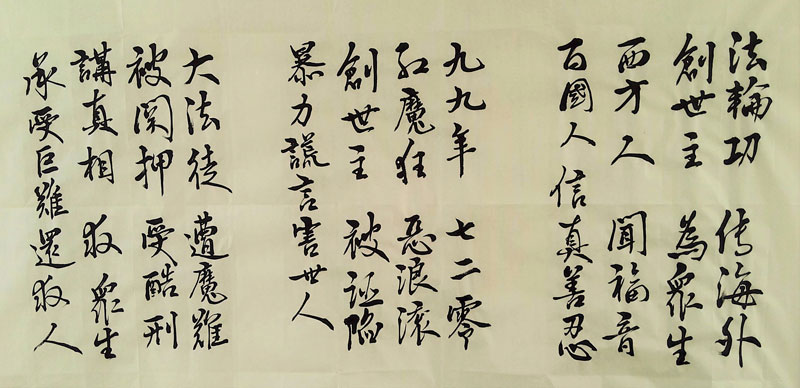 法輪功 传海外
創世主 為眾生
西方人 聞福音
百國人 信真善忍
九九年 七二零
紅魔狂 惡浪滚
創世主 被诬陷
暴力謊言害世人
大法徒 遭魔難
被関押 受酷刑
講真相 救眾生
承受巨難還救人